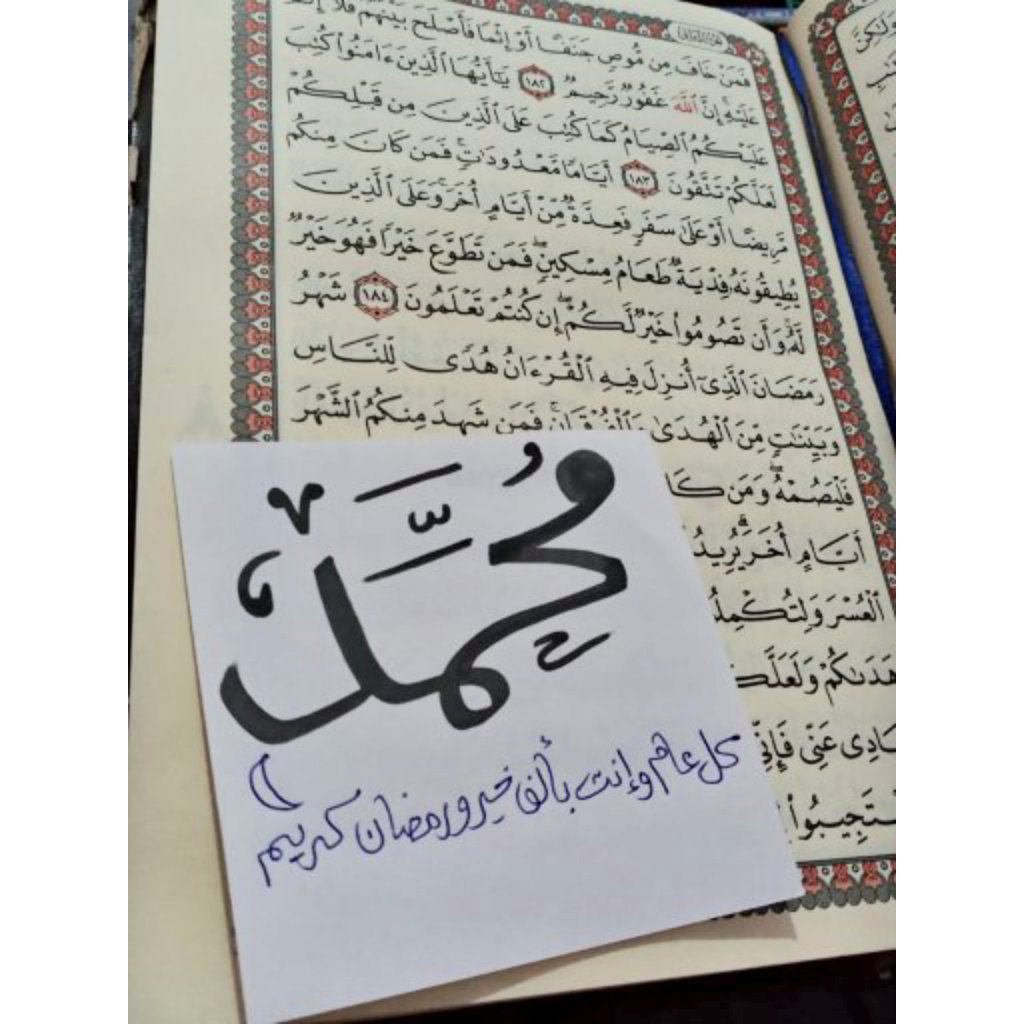 فَمَنْ خَافَ مِن مُّوصٍ جَنَفًا أَوْ إِثْمًا فَأَصْلَحَ بَيْنَهُمْ فَلَا
عَلَيْهِ إِنَّ ٱللَّهَ غَفُورٌ رَّحِيمٌ ١٨٢ يَٰٓأَيُّهَا ٱلَّذِينَ ءَامَنُوا۟ كُتِبَ
عَلَيْكُمُ ٱلصِّيَامُ كَمَا كُتِبَ عَلَى ٱلَّذِينَ مِن قَبْلِكُمْ
لَعَلَّكُمْ تَتَّقُونَ ١٨٣ أَيَّامًا مَّعْدُودَٰتٍ فَمَن كَانَ مِنكُم
مَّرِيضًا أَوْ عَلَىٰ سَفَرٍ فَعِدَّةٌ مِّنْ أَيَّامٍ أُخَرَ وَعَلَى ٱلَّذِينَ
يُطِيقُونَهُۥ فِدْيَةٌ طَعَامُ مِسْكِينٍ فَمَن تَطَوَّعَ خَيْرًا فَهُوَ خَيْرٌ
لَّهُۥ وَأَن تَصُومُوا۟ خَيْرٌ لَّكُمْ إِن كُنتُمْ تَعْلَمُونَ ١٨٤ شَهْرُ
رَمَضَانَ ٱلَّذِىٓ أُنزِلَ فِيهِ ٱلْقُرْءَانُ هُدًى لِّلنَّاسِ
وَبَيِّنَٰتٍ مِّنَ ٱلْهُدَىٰ وَٱلْفُرْقَانِ فَمَن شَهِدَ مِنكُمُ ٱلشَّهْرَ
فَلْيَصُمْهُ وَمَن كَا
أَيَّامٍ أُخَرَ يُرِيدُ
ٱلْعُسْرَ وَلِتُكْمِلُ
هَدَىٰكُمْ وَلَعَلَّكُ
عِبَادِى عَنِّى فَإِنِّى
تَجِيبُوا۟
مُحَمَّد
كل عام وإنت بألف خير ورمضان كريم